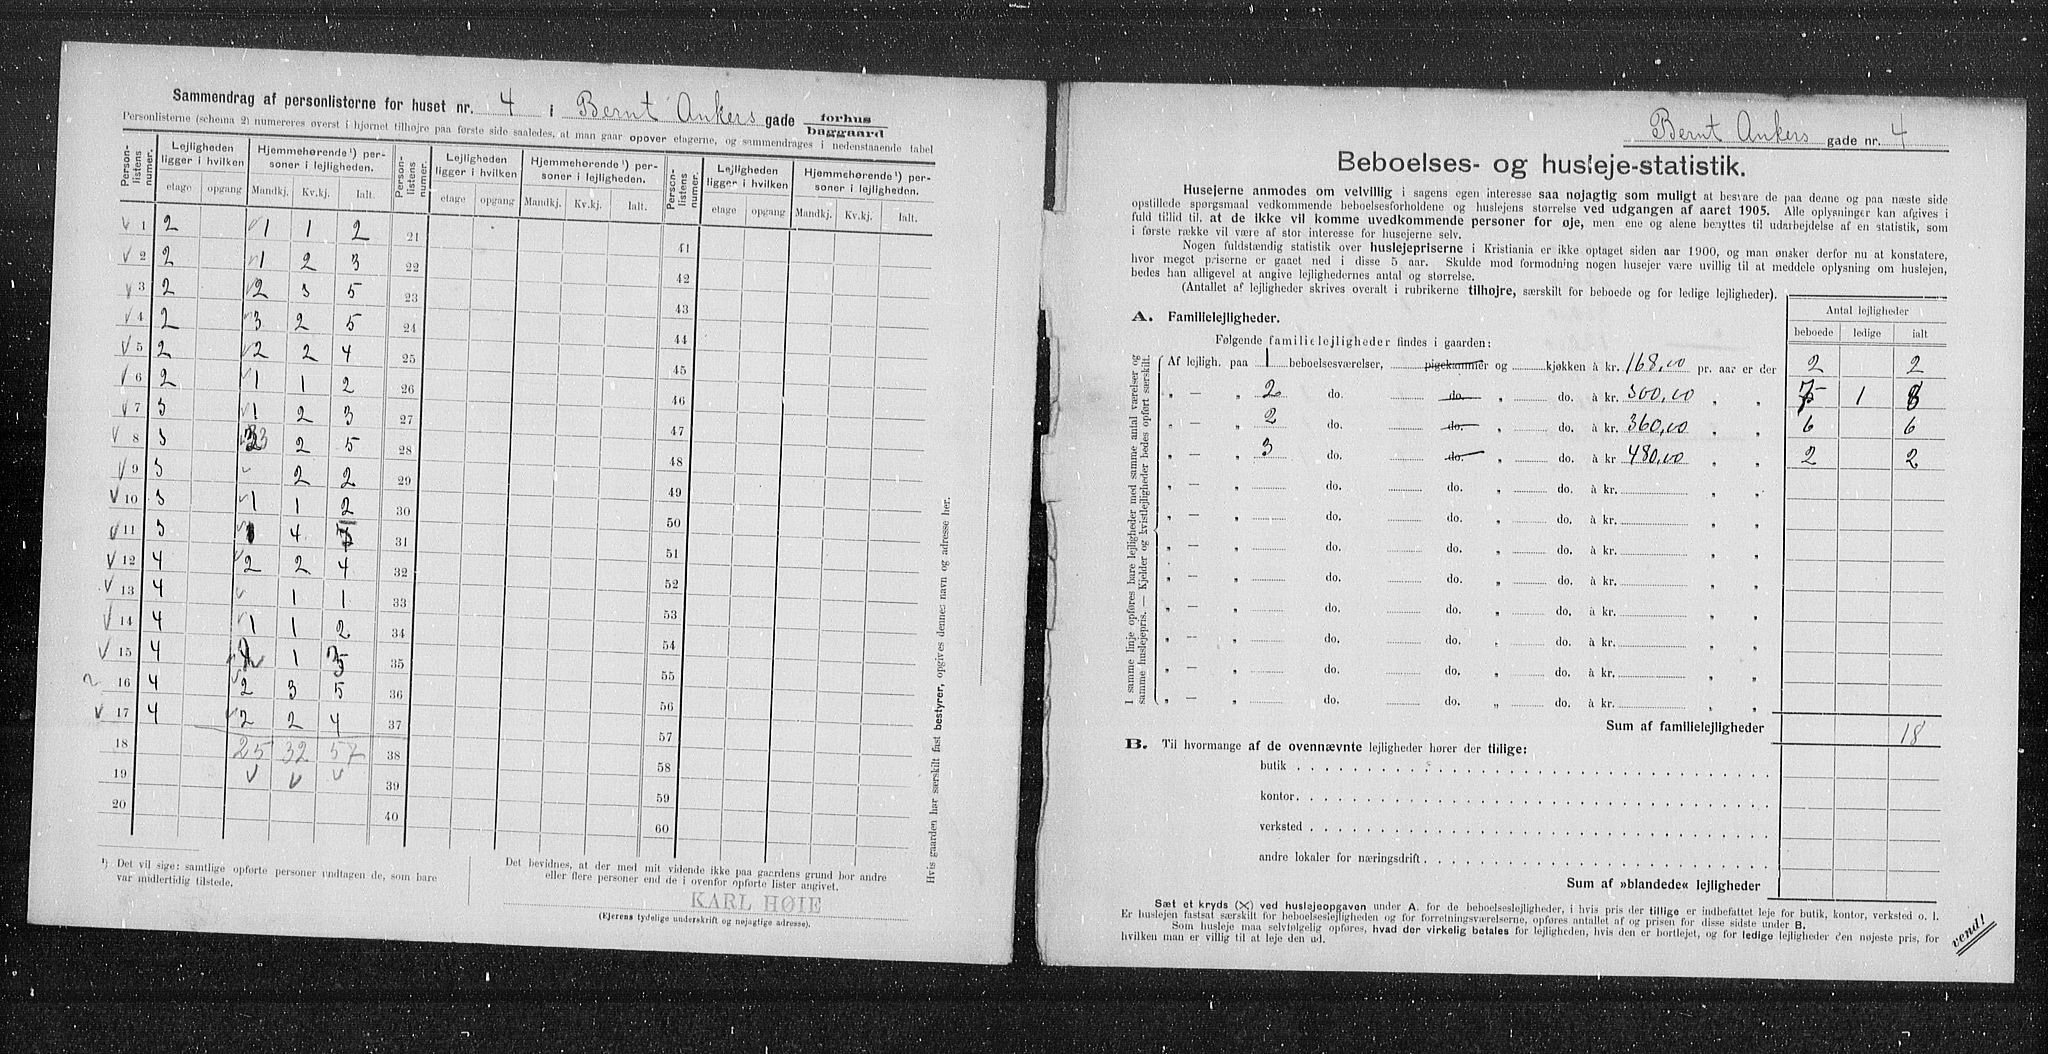 Sammendrag af personlisterne for huset nr. 4 i Bernt Ankers gade forhus baggaard
Personlisterne (schema 2) numereres øverst i hjørnet tilhøjre paa første side saaledes, at man gaar opover etagerne, og sammendrages i nedenstaaende tabel
Person-listens nummer. | Lejligheden ligger i hvilken | Hjemmehørende¹) personer i lejligheden. | Person-listens nummer. | Lejligheden ligger i hvilken | Hjemmehørende¹) personer i lejligheden. | Person-listens nummer. | Lejligheden ligger i hvilken | Hjemmehørende¹) personer i lejligheden.
etage opgang Mandkj. Kv.kj. Ialt. etage opgang Mandkj. Kv.kj. Ialt. etage opgang Mandkj. Kv.kj. Ialt.
√ 1 2 √1 1 2 21 41
√ 2 2 √1 2 3 22 42
√ 3 2 √2 3 5 23 43
√ 4 2 √3 2 5 24 44
√ 5 2 √2 2 4 25 45
√ 6 2 √1 1 2 26 46
√ 7 3 √1 2 3 27 47
√ 8 3 3 2 5 28 48
√ 9 3 √ 2 2 29 49
√ 10 3 √1 1 2 30 50
√ 11 3 √1 4 5 31 51
√ 12 4 √2 2 4 32 52
√ 13 4 √ 1 1 33 53
√ 14 4 √1 1 2 34 54
√ 15 4 1 3 35 55
16 4 √2 3 5 36 56
√ 17 4 √2 2 4 37 57
18 25 32 57 38 58
19 √ √ √ 39 59
20 40 60
¹) Det vil sige: samtlige opførte personer undtagen de, som bare
var midlertidig tilstede.
Det bevidnes, at der med mit vidende ikke paa gaardens grund bor andre
eller flere personer end de i ovenfor opførte lister angivet.
KARL HØIE
(Ejerens tydelige underskrift og nøjagtige adresse).
Hvis gaarden har særskilt fast bestyrer, opgives dennes navn og adresse her.
Bernt Ankers gade nr. 4
Beboelses- og husleje-statistik.
Husejerne anmodes om velvillig i sagens egen interesse saa nøjagtig som muligt at besvare de paa denne og paa næste side
opstillede spørgsmaal vedkommende beboelsesforholdene og huslejens størrelse ved udgangen af aaret 1905. Alle oplysninger kan afgives i
fuld tillid til, at de ikke vil komme uvedkommende personer for øje, men ene og alene benyttes til udarbejdelse af en statistik, som
i første række vil være af stor interesse for husejerne selv.
Nogen fuldstændig statistik over huslejepriserne i Kristiania er ikke optaget siden aar 1900, og man ønsker derfor nu at konstatere,
hvor meget priserne er gaaet ned i disse 5 aar. Skulde mod formodning nogen husejer være uvillig til at meddele oplysning om huslejen,
bedes han alligevel at angive lejlighedernes antal og størrelse.
(Antallet af lejligheder skrives overalt i rubrikerne tilhøjre, særskilt for beboede og for ledige lejligheder).
Antal lejligheder
beboede ledige ialt
A. Familielejligheder.
Følgende familielejligheder findes i gaarden:
I samme linje opføres bare lejligheder med samme antal værelser og
samme huslejepris. — Kjelder og kvistlejligheder bedes opført særskilt.
Af lejligh. paa 1 beboelsesværelser, pigekammer og kjøkken à kr. 168,00 pr. aar er der 2 2
„ — „ 2 do. do. „ do. à kr. 300,00 „ „ 7 1 8
„ — „ 2 do. do. „ do. à kr. 360,00 „ „ 6 6
„ — „ 3 do. do. „ do. à kr 480,00 „ „ 2 2
„ — „ do. do. „ do. à kr. „ „
„ — „ do. do. „ do. à kr. „ „
„ — „ do. do. „ do. à kr. „ „
„ — „ do. do. „ do. à kr. „ „
„ — „ do. do. „ do. à kr. „ „
„ — „ do. do. „ do. à kr. „ „
„ — „ do. do. „ do. à kr. „ „
„ — „ do. do. „ do. à kr. „ „
Sum af familielejligheder 18
B. Til hvormange af de ovennævnte lejligheder hører der tillige:
butik
kontor
verksted
andre lokaler for næringsdrift
Sum af »blandede« lejligheder
Sæt et kryds (X) ved huslejeopgaven under A. for de beboelseslejligheder, i hvis pris der tillige er indbefattet leje for butik, kontor, verksted o. l.
Er huslejen fastsat særskilt for beboelseslejligheden og for forretningsværelserne, opføres antallet af og prisen for disse sidste under B.
Som husleje maa selvfølgelig opføres, hvad der virkelig betales for lejligheden, hvis den er bortlejet, og for ledige lejligheder den nøjeste pris, for
hvilken man er villig til at leje den ud.
vend!